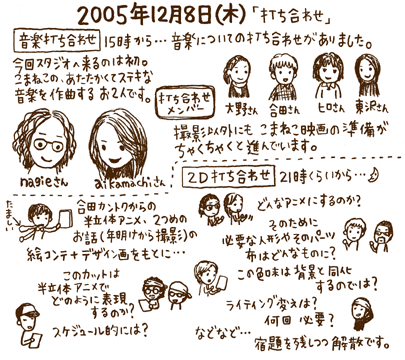 2005年12月8日(木)「打ち合わせ」
音楽打ち合わせ 15時から…音楽についての打ち合わせがありました。
今回スタジオへ来るのは初。
こまねこの、あたたかくてステキな
音楽を作曲するお2人です。
nagieさん
aikamachiさん
打ち合わせ
メンバー
大野さん
合田さん
ヒロさん
東沢さん
撮影以外にも こまねこ映画の準備が
ちゃくちゃくと進んでいます。
2D打ち合わせ 21時くらいから…
たましい
合田カントクからの
半立体アニメ、2つめの
お話(年明けから撮影)の
絵コンテ+デザイン画をもとに…
このカットは
半立体アニメで
どのように表現
するのか?
スケジュール的には?
どんなアニメにするのか?
そのために
必要な人形やそのパーツ
布はどんなものに?
この色味は背景と同化
するのでは?
ライティング変えは?
何回必要?
などなど…
宿題を残しつつ解散です。